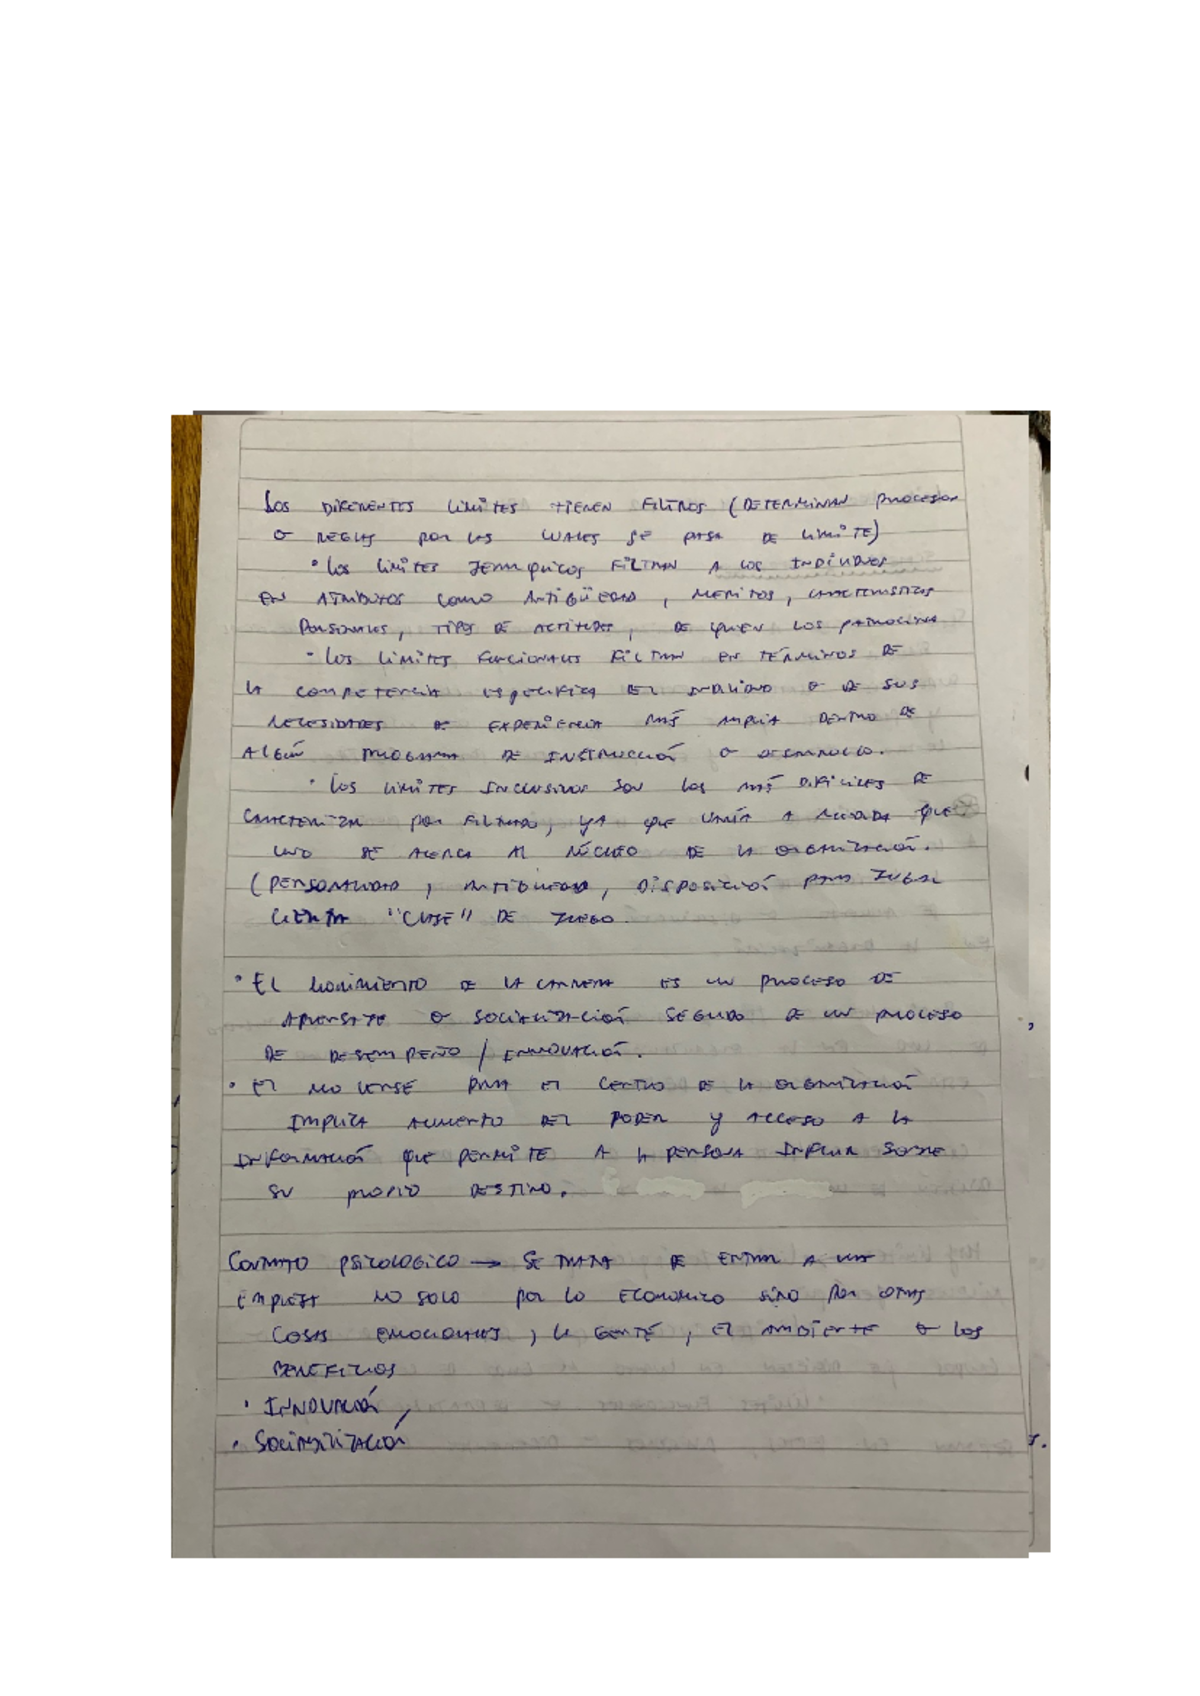 Los DIFERENTES LIMITES TIENEN FILTROS (DETERMINAN PROCESOS
O REGLAS POR LAS CUALES SE PASA DE LIMITE)
• LOS LIMITES JERARQUICOS FILTRAN A LOS INDIVIDUOS
EN ATRIBUTOS COMO ANTIGÜEDAD, MERITOS, CARACTERISTICAS
PERSONALES, TIPOS DE ACTITUDES, DE QUIEN LOS PATROCINA
• LOS LIMITES FUNCIONALES FILTRAN EN TÉRMINOS DE
LA COMPETENCIA ESPECIFICA DEL INDIVIDUO O DE SUS
NECESIDADES DE EXPERIENCIA MÁS AMPLIA DENTRO DE
ALGÚN PROGRAMA DE INSTRUCCIÓN O DESARROLLO.
• LOS LIMITES INCLUSIVOS SON LOS MÁS DIFICILES DE
CARACTERIZAR POR FILTRADO, YA QUE VARÍA A MEDIDA QUE
UNO SE ACERCA AL NÚCLEO DE LA ORGANIZACIÓN.
(PERSONALIDAD, ANTIGUEDAD, DISPOSICIÓN PARA JUGAR
CIERTA "CLASE" DE JUEGO.
• EL MOVIMIENTO DE LA CARRERA ES UN PROCESO DE
O SOCIALIZACIÓN SEGUIDO DE UN PROCESO
DE DESEMPEÑO / INNOVACIÓN.
• EL MOVERSE PARA EL CENTRO DE LA ORGANIZACIÓN
IMPLICA AUMENTO DEL PODER Y ACCESO A LA
INFORMACIÓN QUE PERMITE A LA PERSONA INFLUIR SOBRE
SU PROPIO DESTINO.
CONTRATO PSICOLOGICO → SE TRATA DE ENTRAR A UNA
EMPRESA NO SOLO POR LO ECONOMICO SINO POR OTRAS
COSAS EMOCIONALES, LA GENTE, EL AMBIENTE O LOS
BENEFICIOS
• INNOVACIÓN,
• SOCIABILIZACIÓN